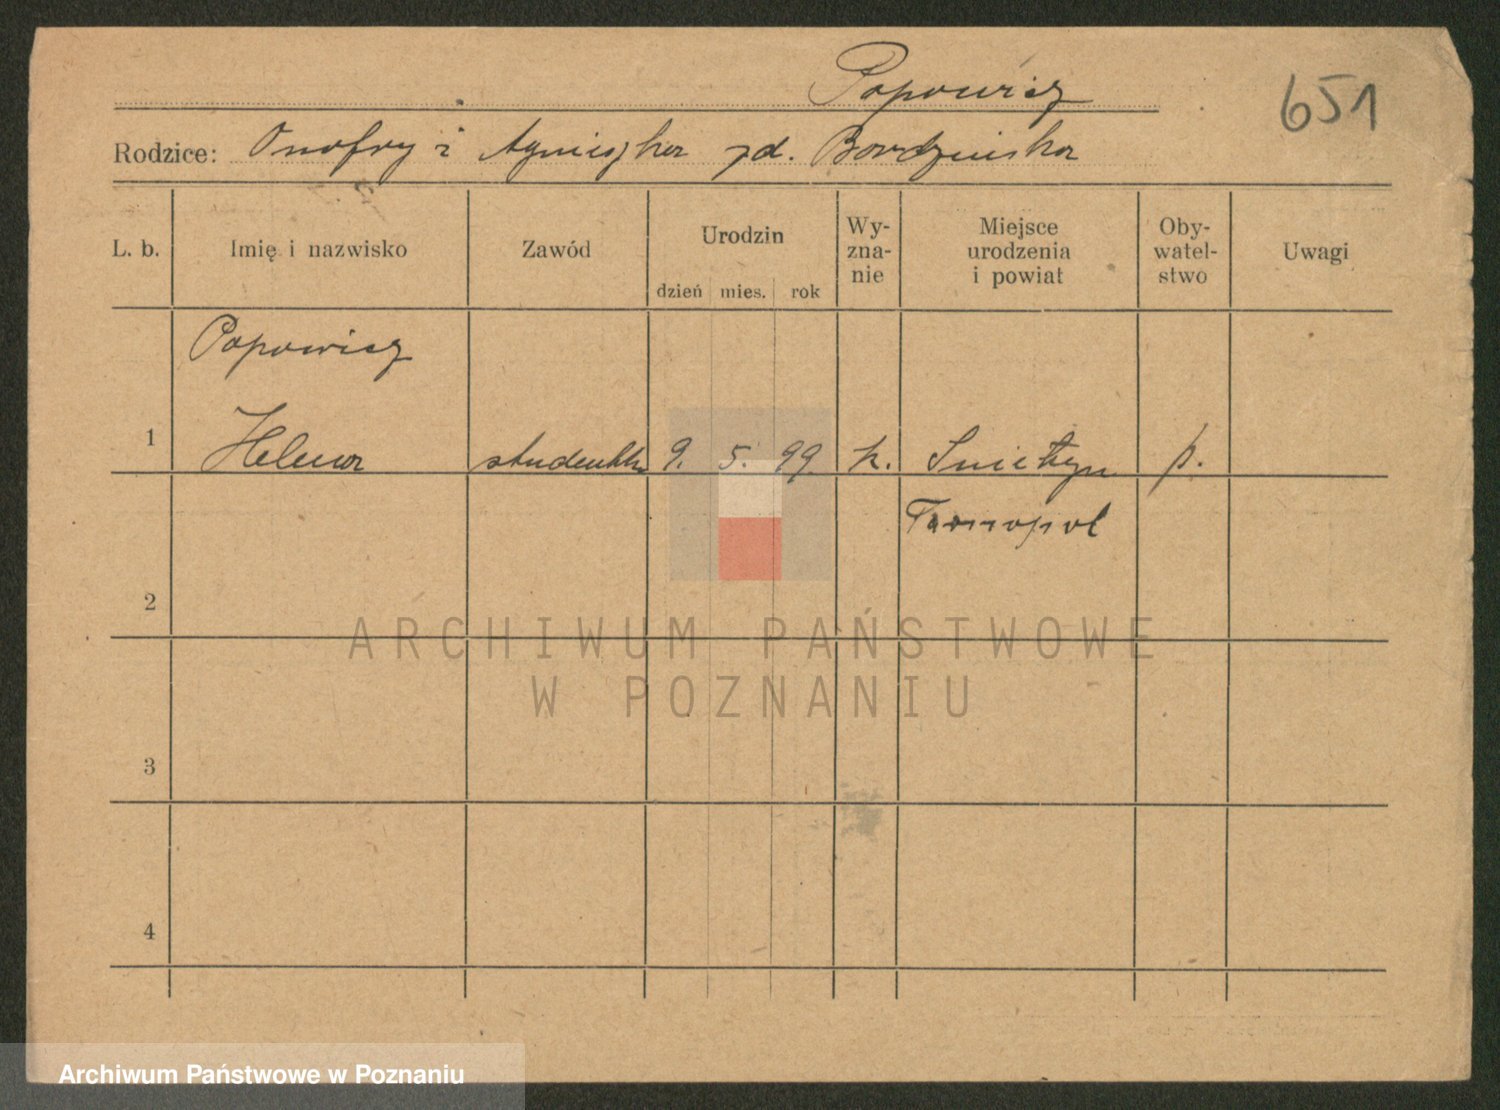 Popowicz
651
Rodzice: Onofry i Agnieszka zd.
L. b.
Imię i nazwisko
Zawód
Urodzin
dzień mies. rok
Wy-
zna-
nie
Miejsce
urodzenia
i powiat
Oby-
watel-
stwo
Uwagi
Popowicz
1 Helena studentka 9. 5. 99. k. p.
Tarnopol
2
ARCHIWUM PAŃSTWOWE
W POZNANIU
3
4
Archiwum Państwowe w Poznaniu